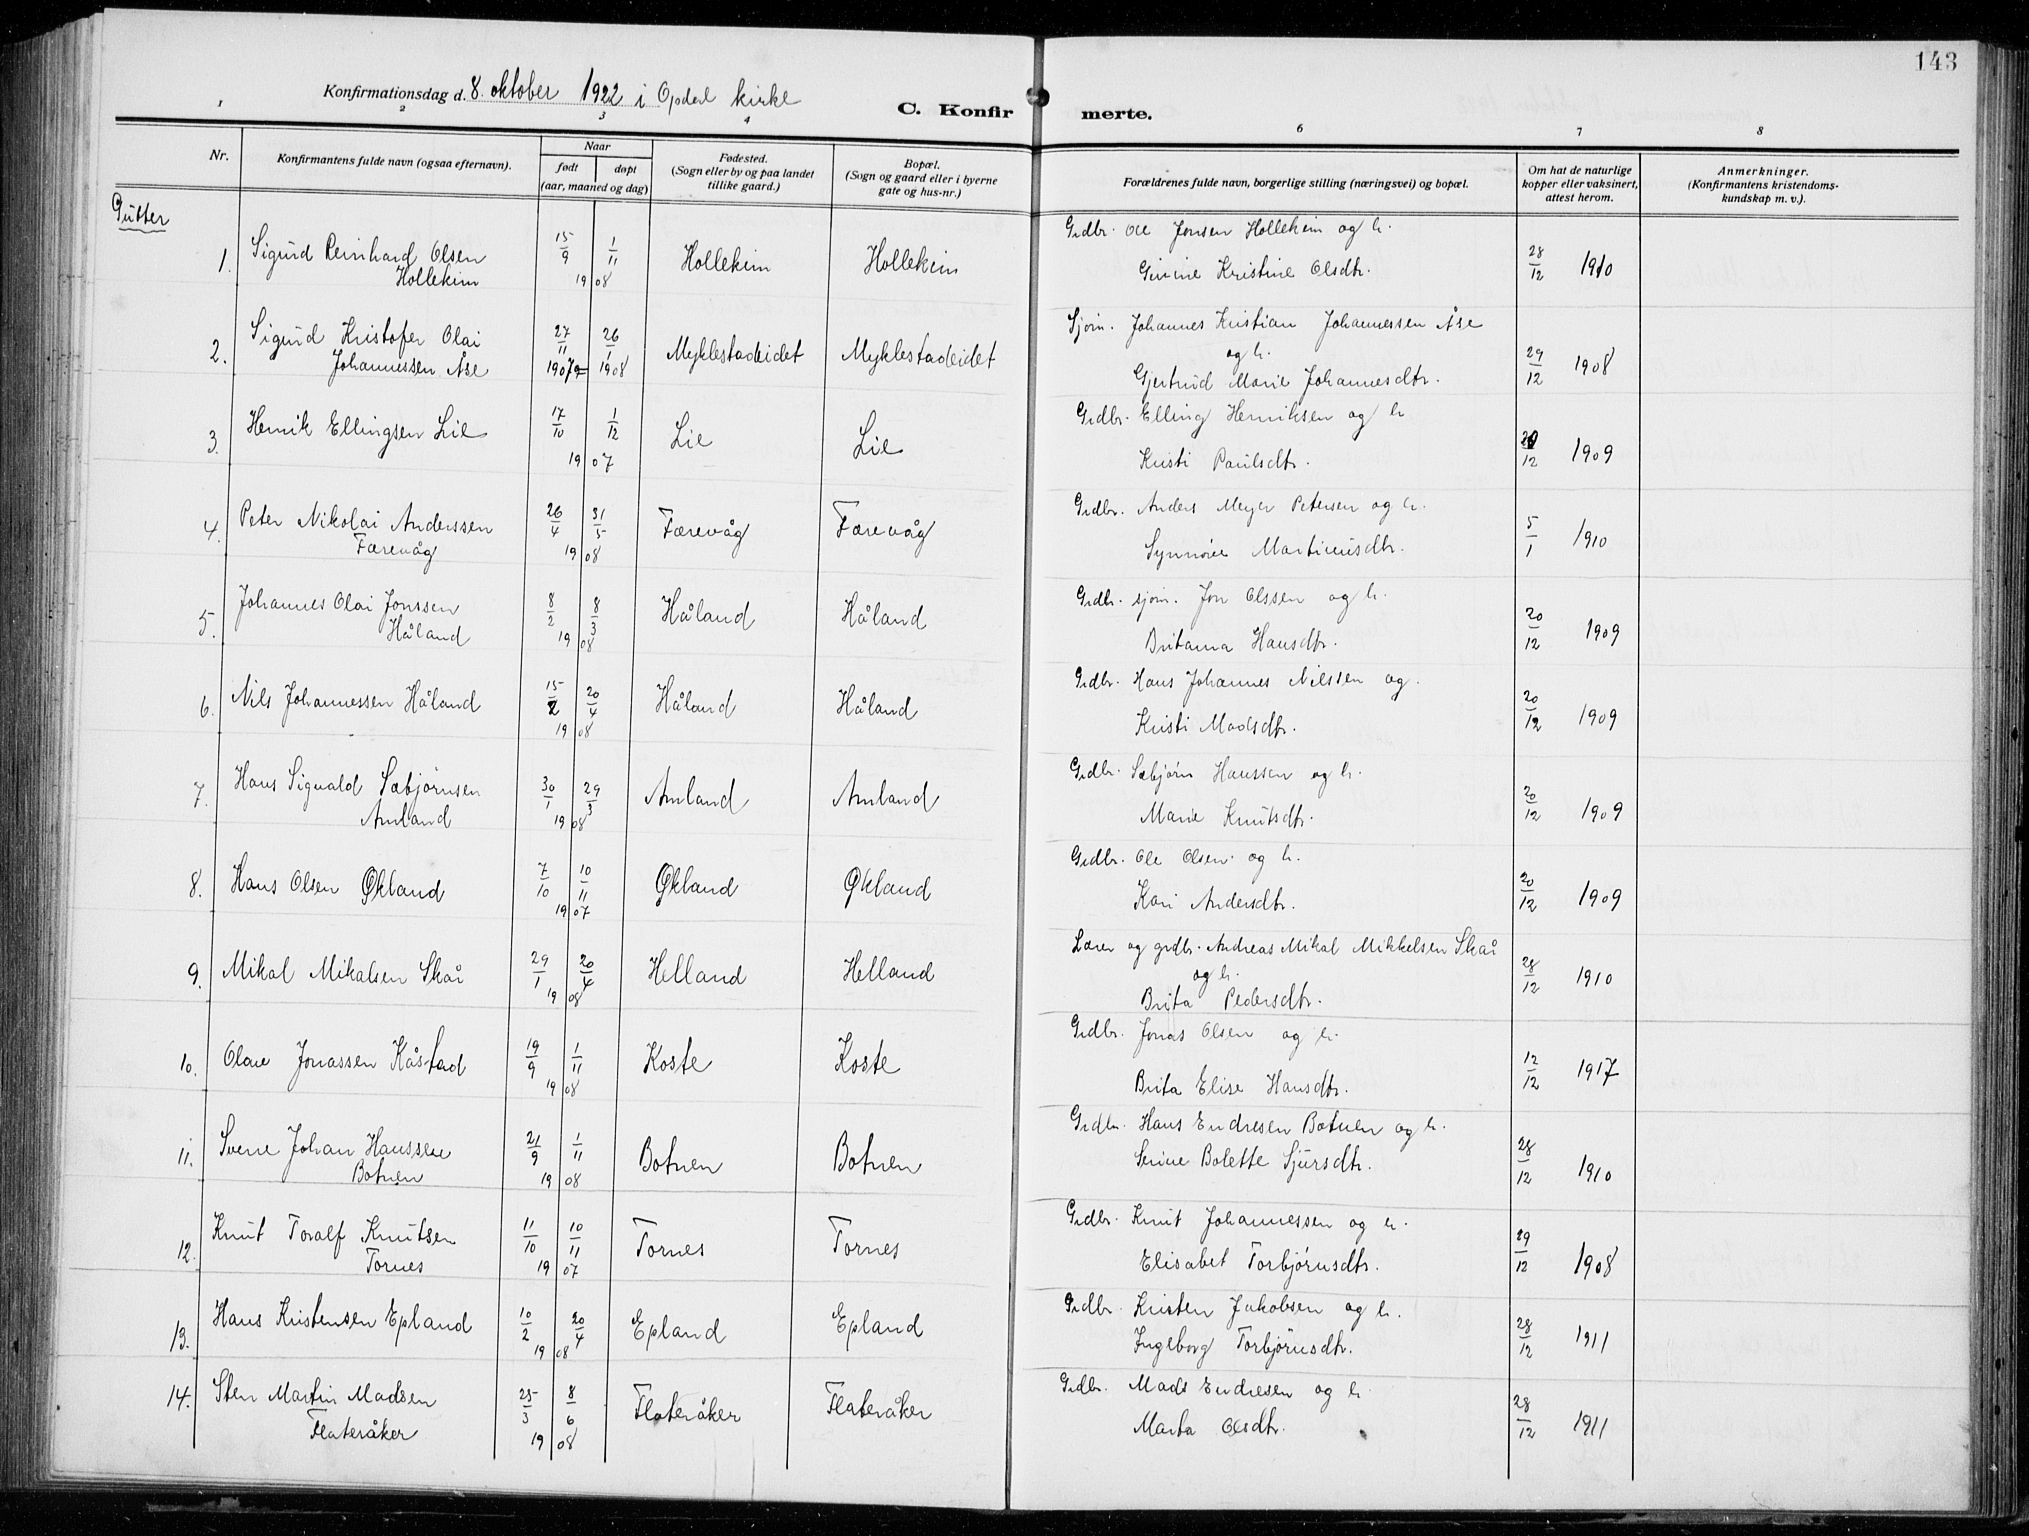 143
Konfirmationsdag d. 8. oktober 1922 i Opdal kirke
C. Konfirmerte.
1 2 3 4 6 7 8
Nr.
Konfirmantens fulde navn (ogsaa efternavn).
Naar
født døpt
(aar, maaned og dag)
Fødested.
(Sogn eller by og paa landet
tillike gaard.)
Bopæl.
(Sogn og gaard eller i byerne
gate og hus-nr.)
Forældrenes fulde navn, borgerlige stilling (næringsvei) og bopæl.
Om hat de naturlige
kopper eller vaksinert,
attest herom.
Anmerkninger.
(Konfirmantens kristendoms-
kundskap m. v.).
Gutter
1. Sigurd Reinhard Olsen
Hollekim
15/9 1/11 1908 Hollekim Hollekim
Grdbr. Ole Jonsen Hollekim og h.
Kristine Olsdtr.
28/12 1910
2. Sigurd Kristofer Olai
Johannessen Åse
27/11 1907 26/1 1908 Myklestadeidet Myklestadeidet
Sjøm. Johannes Kristian Johannessen Åse
og h.
Gjertrud Marie Johannesdtr.
29/12 1908
3. Henrik Ellingsen Lie
17/10 1/12 1907 Lie Lie
Grdbr. Elling Henriksen og h
Kristi Paulsdtr.
20/12 1909
4. Peter Nikolai Anderssen
Færevåg
26/4 31/5 1908 Færevåg Færevåg
Grdbr. Anders Meyer Petersen og h.
Synnøve Martinusdtr.
5/1 1910
5. Johannes Olai Jonssen
Håland
8/2 8/3 1908 Håland Håland
Grdbr. sjøm. Jon Olssen og h.
Britanna Hansdtr.
20/12 1909
6. Nils Johannessen Håland
15/2 20/4 1908 Håland Håland
Grdbr. Hans Johannes Nilssen og.
Kristi Madsdtr.
20/12 1909
7. Hans Sigvald Sæbjørnsen
Amland
30/1 29/3 1908 Amland Amland
Grdbr. Sæbjørn Hanssen og h.
Marie Knutsdtr.
20/12 1909
8. Hans Olsen Økland
7/10 10/11 1907 Økland Økland
Grdbr. Ole Olsen og h.
Kari Andersdtr.
20/12 1909
9. Mikal Mikalsen Skår
29/1 20/4 1908 Helland Helland
Lærer og grdbr. Andreas Mikal Mikkelsen Skår
og h.
Brita Pedersdtr.
28/12 1910
10. Olav Jonassen Kåstad
19/9 1/11 1908 Koste Koste
Grdbr. Jonas Olsen og h.
Brita Elise Hansdtr.
12/12 1917
11. Sverre Johan Hanssen
Botnen
21/9 1/11 1908 Botnen Botnen
Grdbr. Hans Endresen Botnen og h.
Serine Bolette Sjursdtr.
28/12 1910
12. Knut Toralf Knutsen
Tornes
11/10 10/11 1907 Tornes Tornes
Grdbr. Knut Johannessen og h.
Elisabet Torbjørnsdtr.
29/12 1908
13. Hans Kristensen Epland
10/2 20/4 1908 Epland Epland
Grdbr. Kristen Jakobsen og h.
Ingeborg Torbjørnsdtr.
28/12 1911
14. Sten Martin Madsen
Flateråker
25/3 8/6 1908 Flateråker Flateråker
Grdbr. Mads Endresen og h
Marta Olsdtr.
28/12 1911